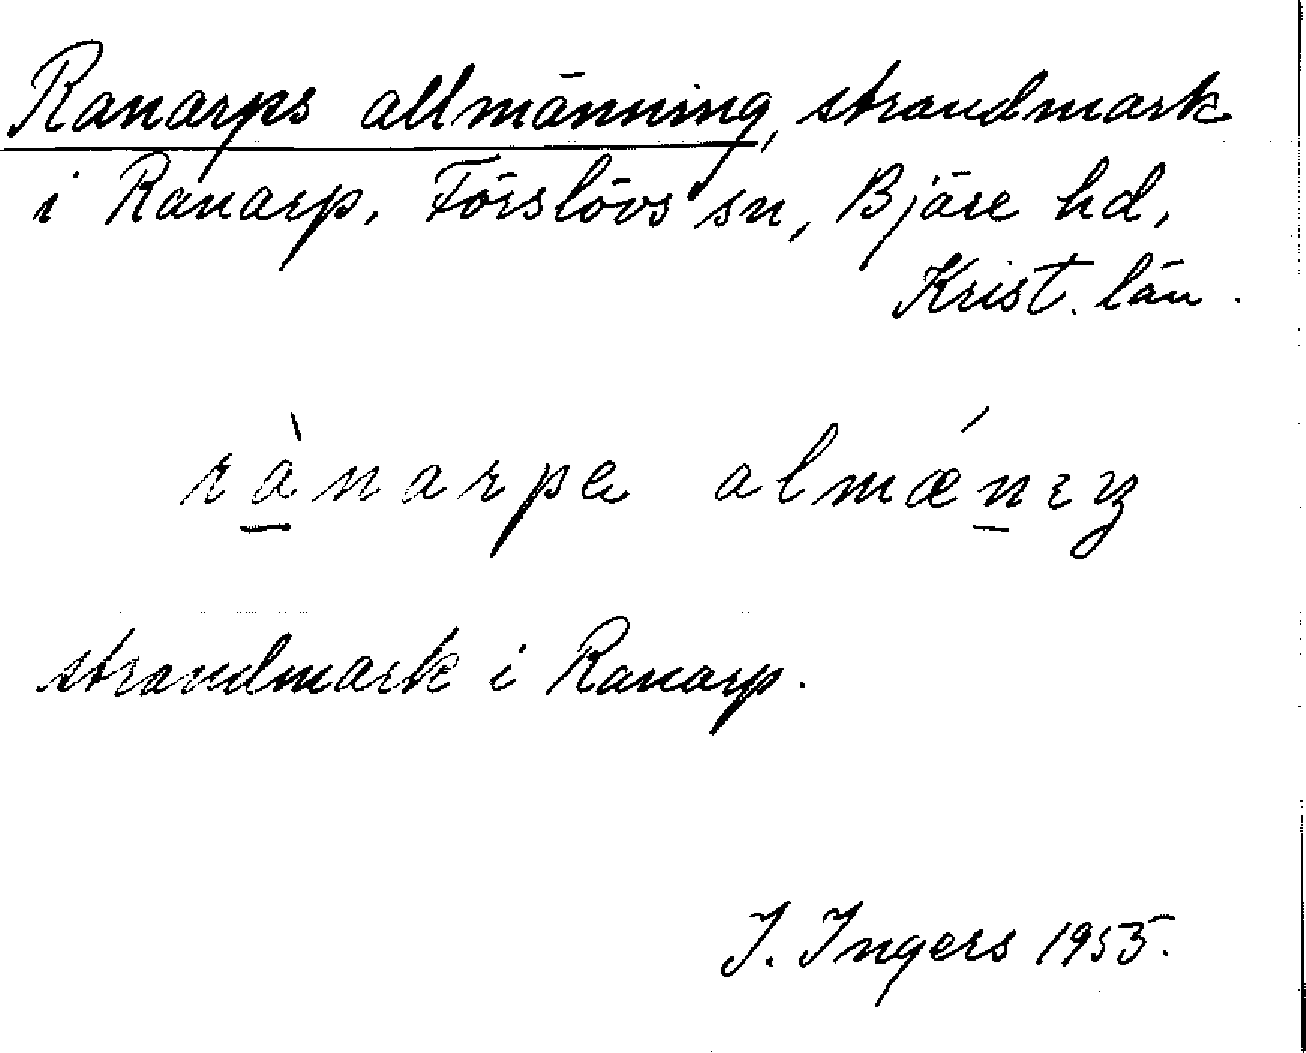 Ranarps allmänning, strandmark
i Ranarp, Förslövs sn, Bjäre hd,
Krist. län.
rànarpa almǽnıŋ
strandmark i Ranarp.
I. Ingers 1955.